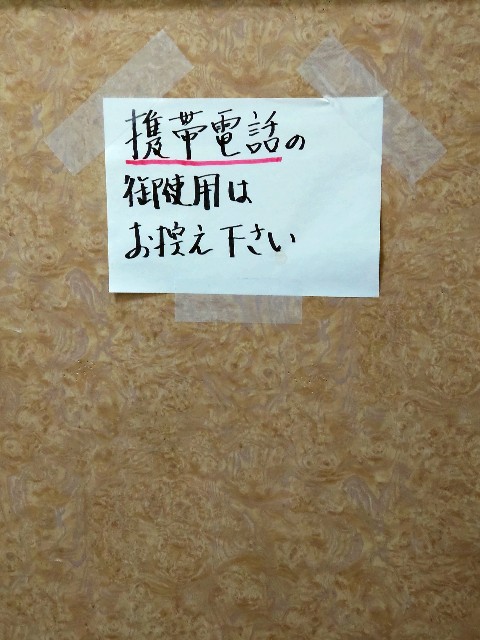 携帯電話の
御使用は
お控え下さい